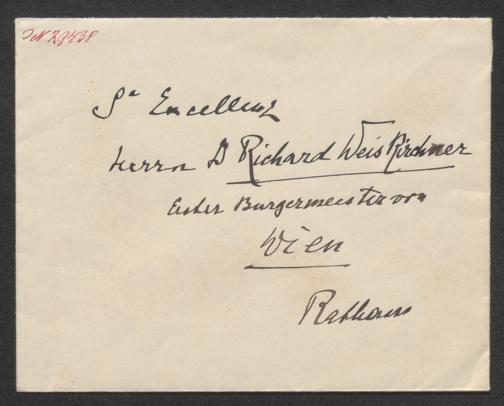 IN 29438
Sr Excellenz
Herrn D Richard Weiskirchner
Erster Burgermeister von
Wien
Rathaus